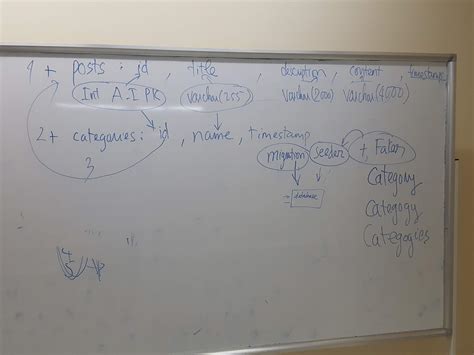 1 + posts : id , title , description , content , timestamp
Int A.I PK varchar(255) Varchar(2000) varchar(4000)
2 + categories : id , name , timestamp
3
migration seeder + Faker
database
Category
Categogy
Categogies
4
5